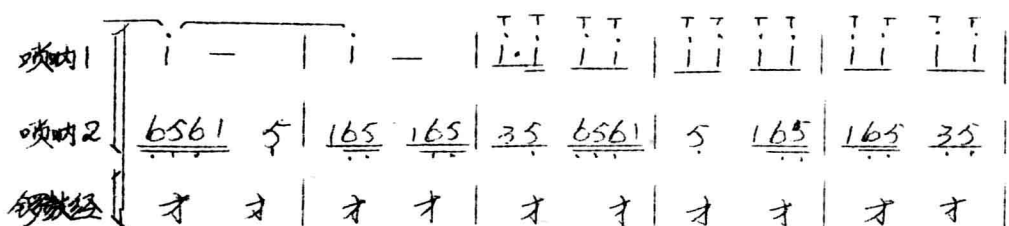 T T T T T T T T T T T T
唢呐1 i — | i — | i·i i i | i i i i | i i i i |
唢呐2 6561 5 | 165 165 | 35 6561 | 5 165 | 165 35 |
锣鼓经 才 才 | 才 才 | 才 才 | 才 才 | 才 才 |